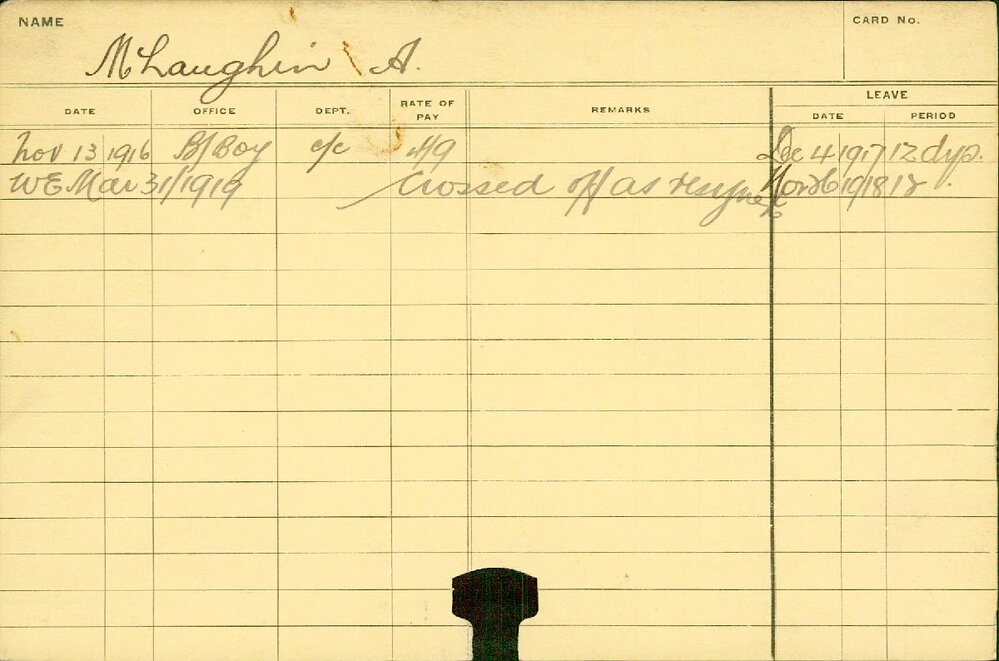 NAME
CARD No.
McLaughlin A.
LEAVE
DATE OFFICE DEPT. RATE OF PAY REMARKS DATE PERIOD
Nov 13 1916 B/Boy c/c 4/9 Dec 4 1917 12 dys.
WE Mar 31/1919 Crossed off as resigned Nov 26 1918 12